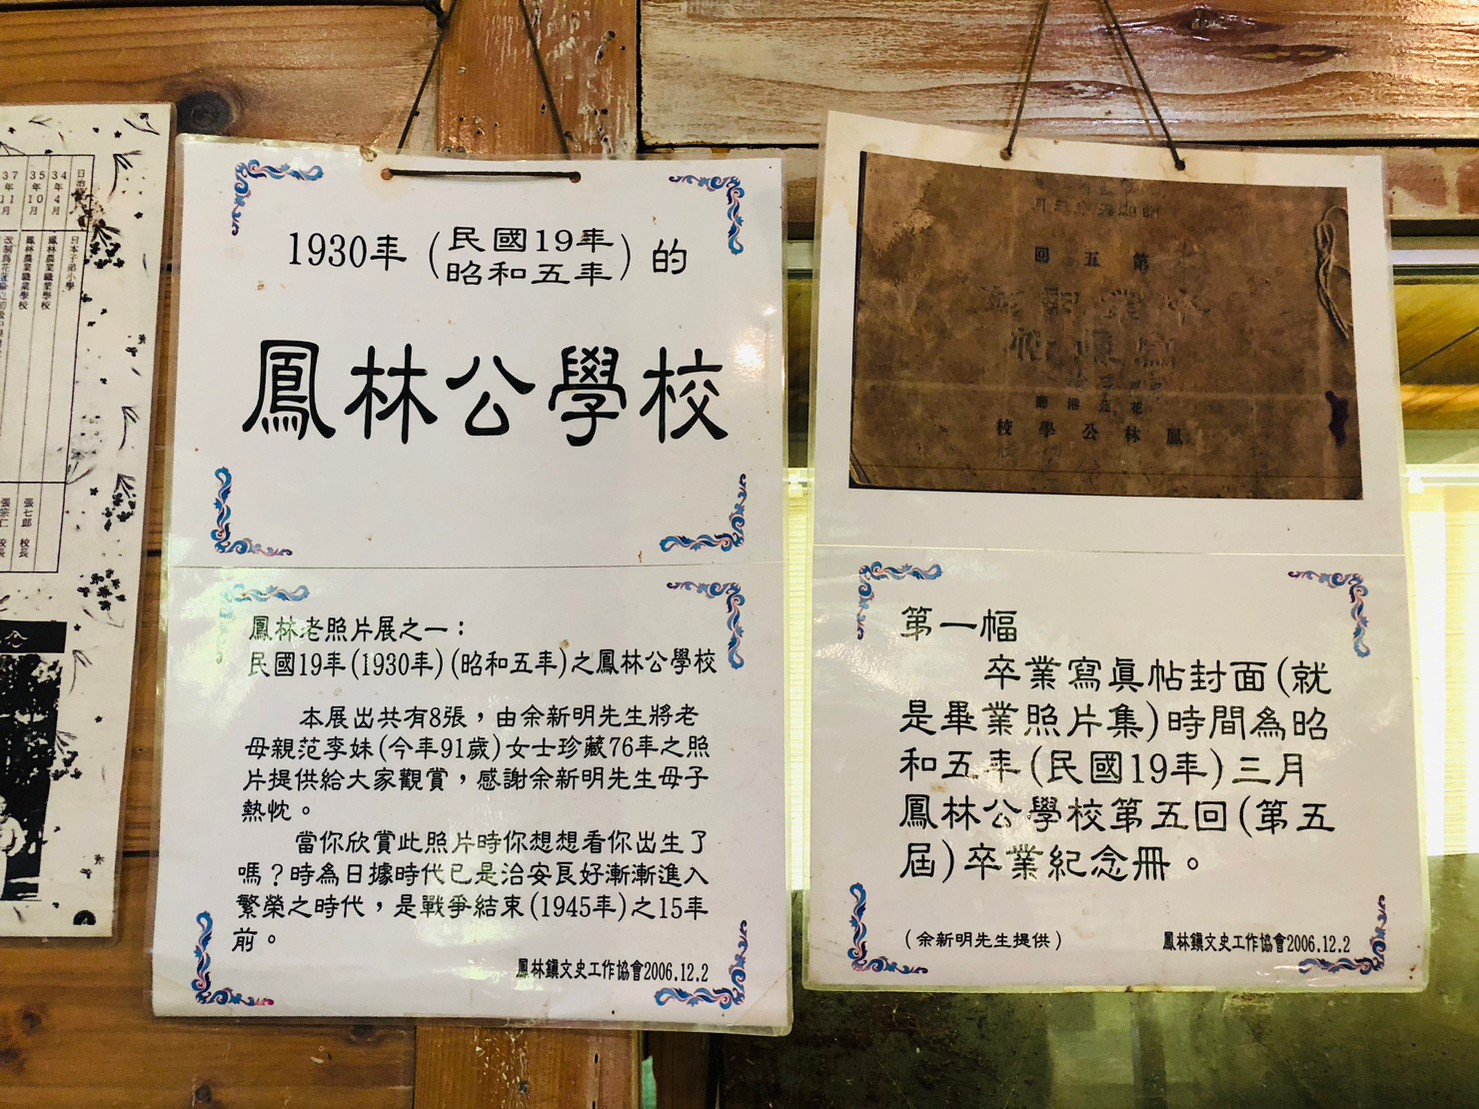 日治
34年4月
日本子弟小學
鳳林農業職業學校
35年10月
鳳林農業職業學校
37年11月
張七郎 校長
張宗仁 校長
1930年(民國19年
昭和五年)的
鳳林公學校
鳳林老照片展之一:
民國19年(1930年)(昭和五年)之鳳林公學校
本展出共有8張,由余新明先生將老
母親范李妹(今年91歲)女士珍藏76年之照
片提供給大家觀賞,感謝余新明先生母子
熱忱。
當你欣賞此照片時你想想看你出生了
嗎?時為日據時代已是治安良好漸漸進入
繁榮之時代,是戰爭結束(1945年)之15年
前。
鳳林鎮文史工作協會2006.12.2
回五第
廳港蓮花
校學公林鳳
第一幅
卒業寫真帖封面(就
是畢業照片集)時間為昭
和五年(民國19年)三月
鳳林公學校第五回(第五
屆)卒業紀念冊。
(余新明先生提供)
鳳林鎮文史工作協會2006.12.2